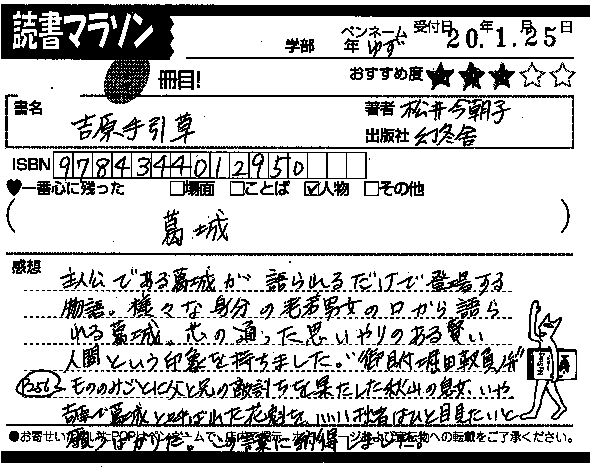 読書マラソン
学部 年 ペンネーム ゆず 受付日 20年1月25日
冊目! おすすめ度 ★★★☆☆
書名 吉原手引草
著者 松井今朝子
出版社 幻冬舎
ISBN 9784344012950
♥一番心に残った □場面 □ことば ☑人物 □その他
( 葛城 )
感想
主人公である葛城が語られるだけで登場する
物語。様々な身分の老若男女の口から語ら
れる葛城。芯の通った思いやりのある賢い
人間という印象を持ちました。"御目付
P256 もののみごとに父と兄の敵討ちを果たした秋山の息女、いや
吉原で葛城と呼ばれた花魁を、 拙者はひと目見たいと
願うばかりだ。この言葉に納得しました。
●お寄せいただいたPOPはペンネームで、店内で掲示、ホームページおよび印刷物への転載をご了承ください。